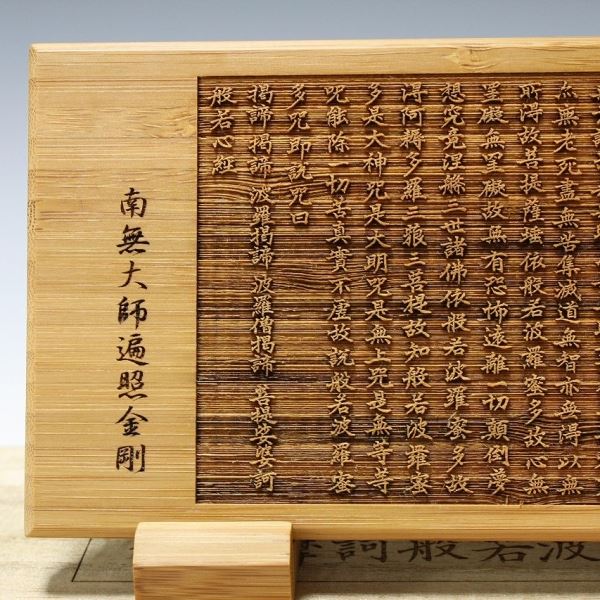 亦無老死盡無苦集滅道無智亦無得以無
所得故菩提薩埵依般若波羅蜜多故心無
罣礙無罣礙故無有恐怖遠離一切顛倒夢
想究竟涅槃三世諸佛依般若波羅蜜多故
得阿耨多羅三藐三菩提故知般若波羅蜜
多是大神咒是大明咒是無上咒是無等等
咒能除一切苦真實不虛故說般若波羅蜜
多咒即說咒曰
揭諦 揭諦 波羅揭諦 波羅僧揭諦 菩提娑婆訶
般若心経
南無大師遍照金剛
訶般若波